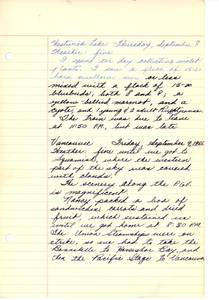 Lake Thursday, September 8
Weather: fine
I spent the day collecting violet
plants. I saw a flock of 15
or less
mixed with a flock of 15-20
bluebirds, both ♂ and ♀, a
yellow bellied marmot, and a
coyote, and young & 2 adult Nighthawks
The train was due to leave
at 10:50 P.M. but was late
Vancouver Friday, September 9, 1955
Weather: fine until we got to
Squamish, where the western
part of the sky was covered
with clouds.
The scenery along the P.G.E.
is magnificent.
Nancy packed a box of
sandwiches, carrots and dried
fruit, which sustained us
until we got home at 8:30 P.M.
The Union Steamships were on
strike, so we had to take the
to Horseshoe Bay, and
then the Pacific Stage to Vancouver